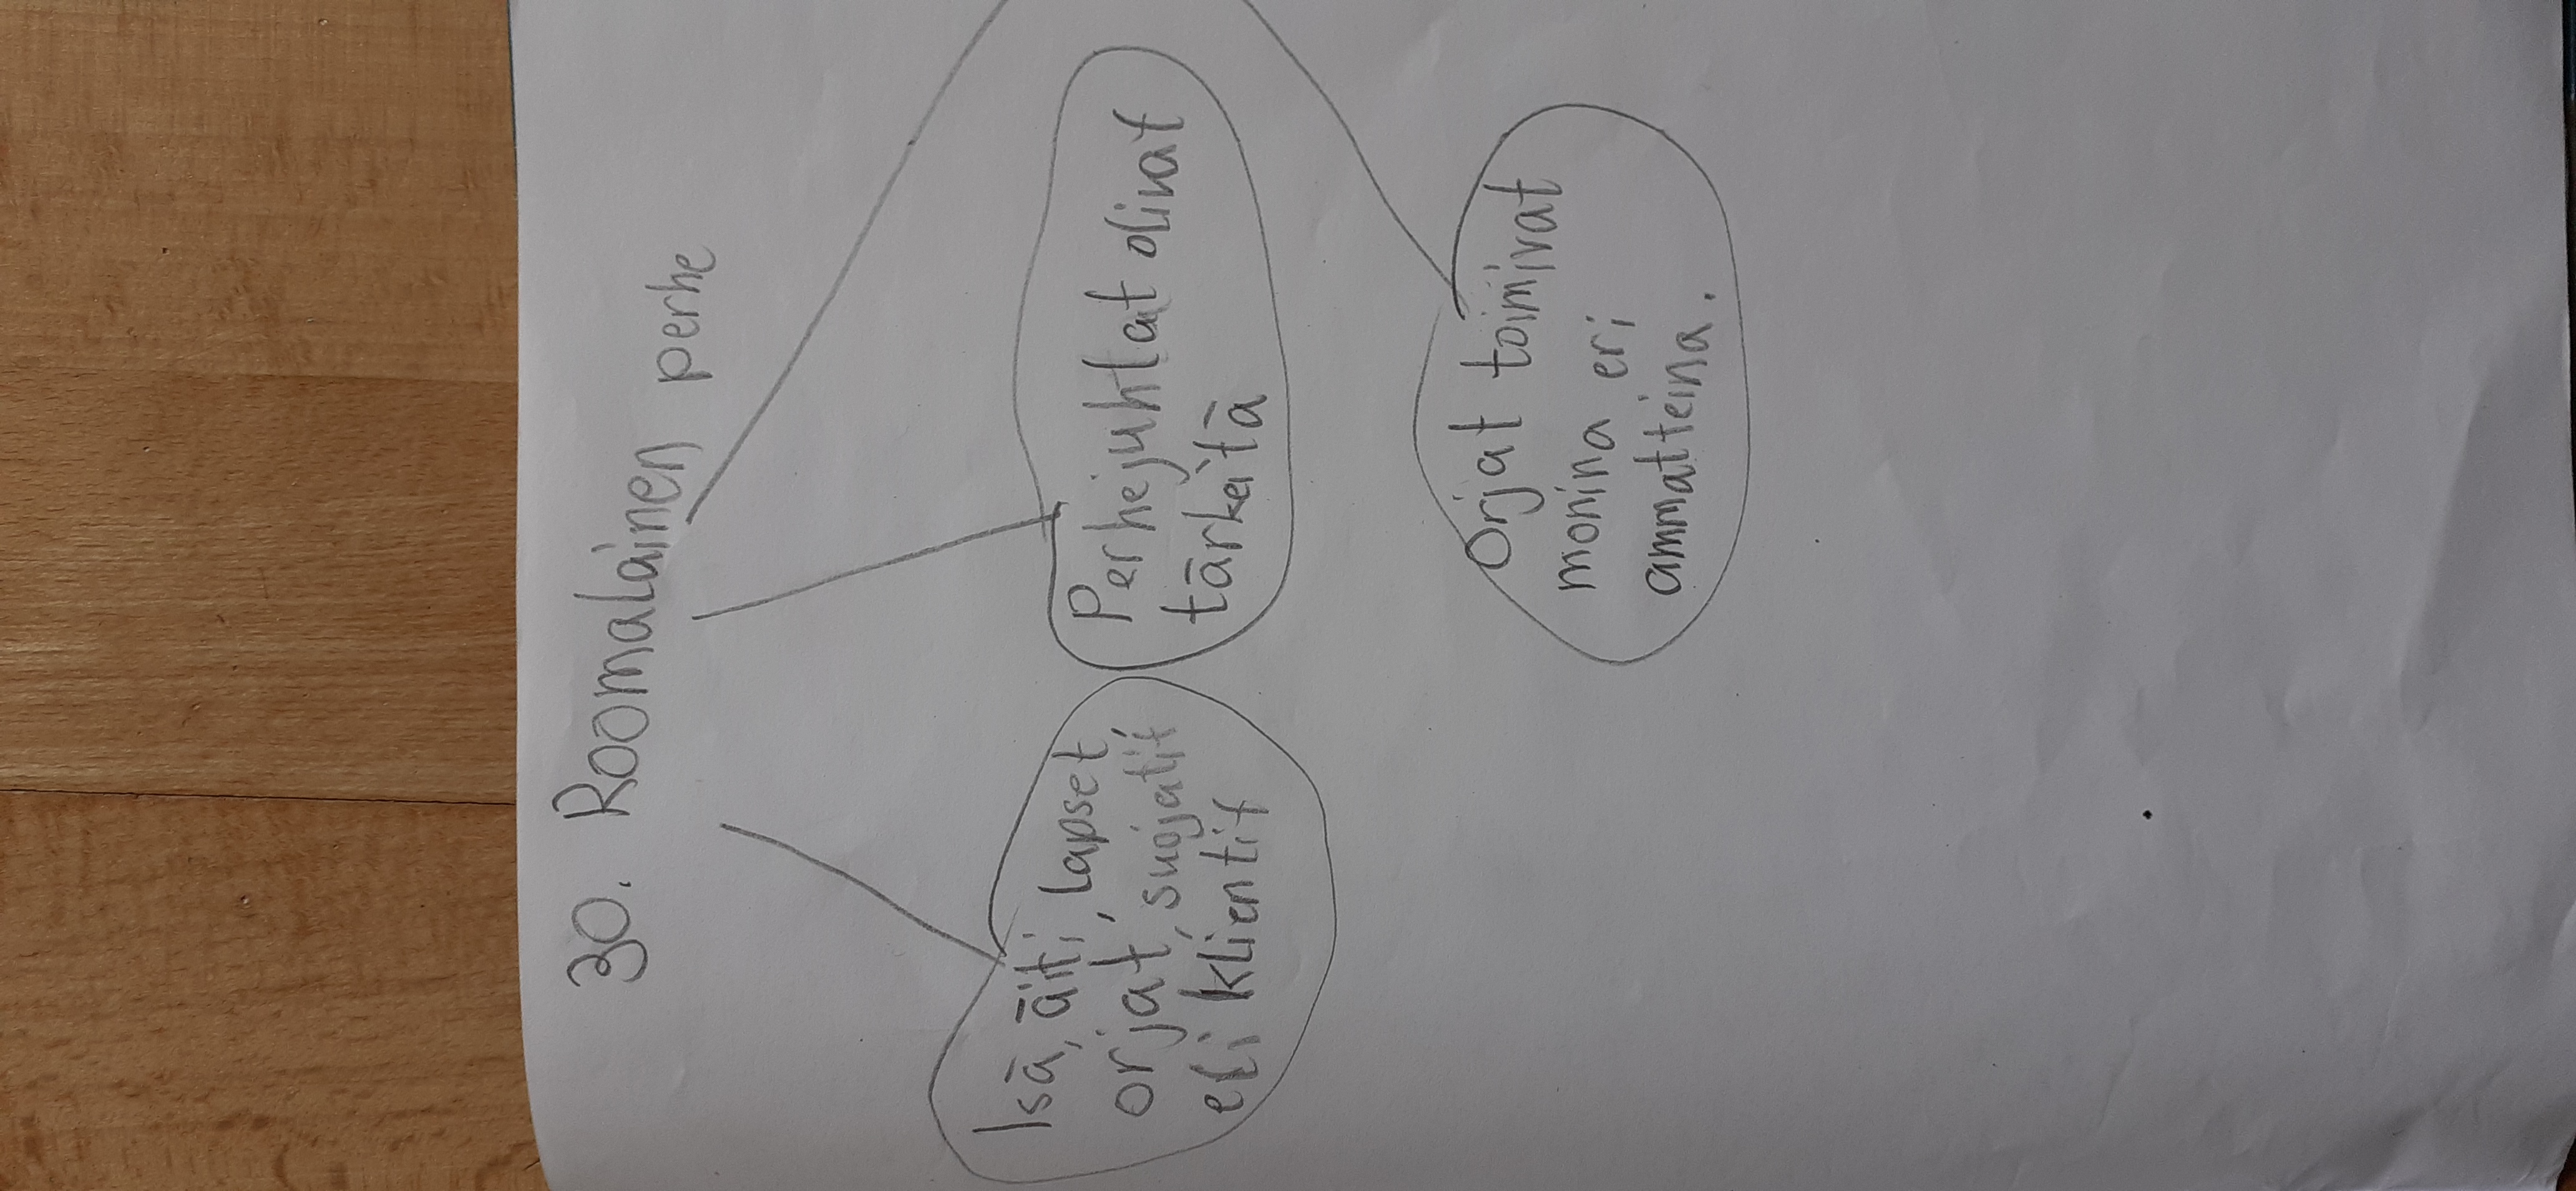 30. Roomalainen perhe
Isä, äiti, lapset,
orjat, suojatit
eli klientit
Perhejuhlat olivat
tärkeitä
Orjat toimivat
monina eri
ammatteina.